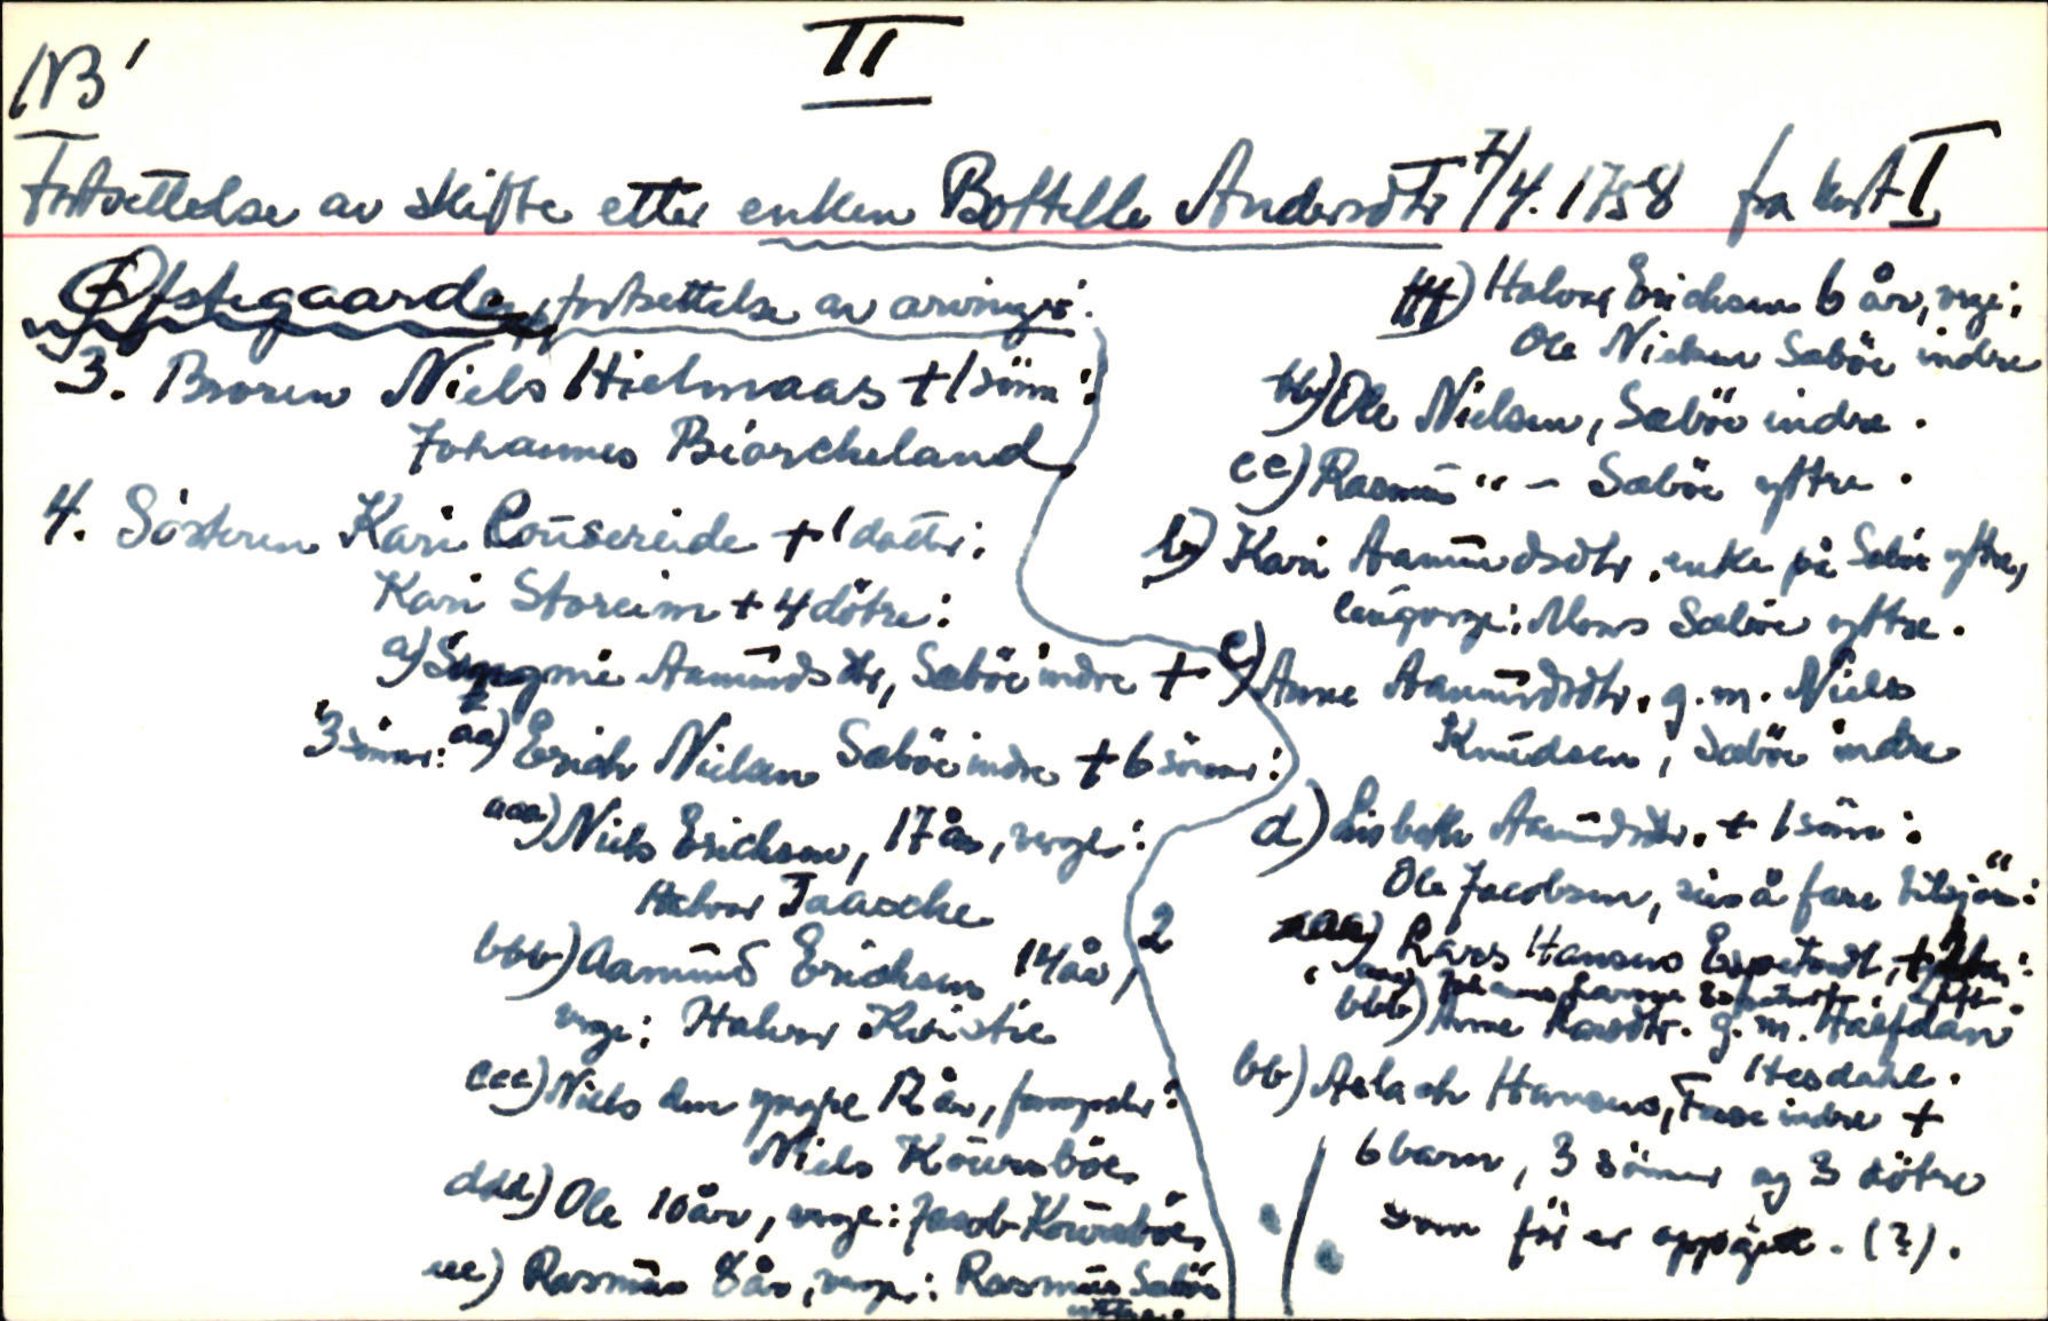 NB!
II
Fortsettelse av skifte etter enken Bottelle Andersdtr 7/4.1758 fra kort I
Øfstegaarden, fortsettelse av arvinger:
3. Broren Niels Hielmaas + 1 sönn:
Johannes Biørcheland
4. Sösteren Kari Rousereide + 1 datter:
Kari Storeim + 4 dötre:
a) Aamundsdtr, Saböe indre +
3 sönner: aa) Erich Nielsen Saböe indre + 6 sönner:
aaa) Niels Erichsen, 17 år, verge:
Halvor Taasche
bbb) Aamund Erichsen 14 år,
verge: Halvor Kristie
ccc) Niels den yngre 12 år,
Niels Kournböe
ddd) Ole 10 år, verge: Jacob Kournböe,
eee) Rasmus 8 år, verge: Rasmus Saböe
yttre.
fff) Halvor Erichsen 6 år, verge:
Ole Nielsen Saböe indre
bb) Ole Nielsen, Saböe indre.
cc) Rasmus " - Saböe yttre.
b) Kari Aamundsdtr. enke på Saböe yttre,
laugverge: Mons Saböe yttre.
c) Anne Aamundsdtr. g.m. Niels
Knudsen, Saböe indre
d) Lisbeth Aamundsdtr. + 1 sönn:
Ole Jacobsen, sies å fare tilsjös:
2 aa) Lars Hansens +
aaa) Johannes Larsen
bbb) Anne Larsdtr. g.m. Halfdan
Hesdahl.
bb) Aslach Hansens, Fosse indre +
6 barn, 3 sönner og 3 dötre
som för er oppgitt. (?).